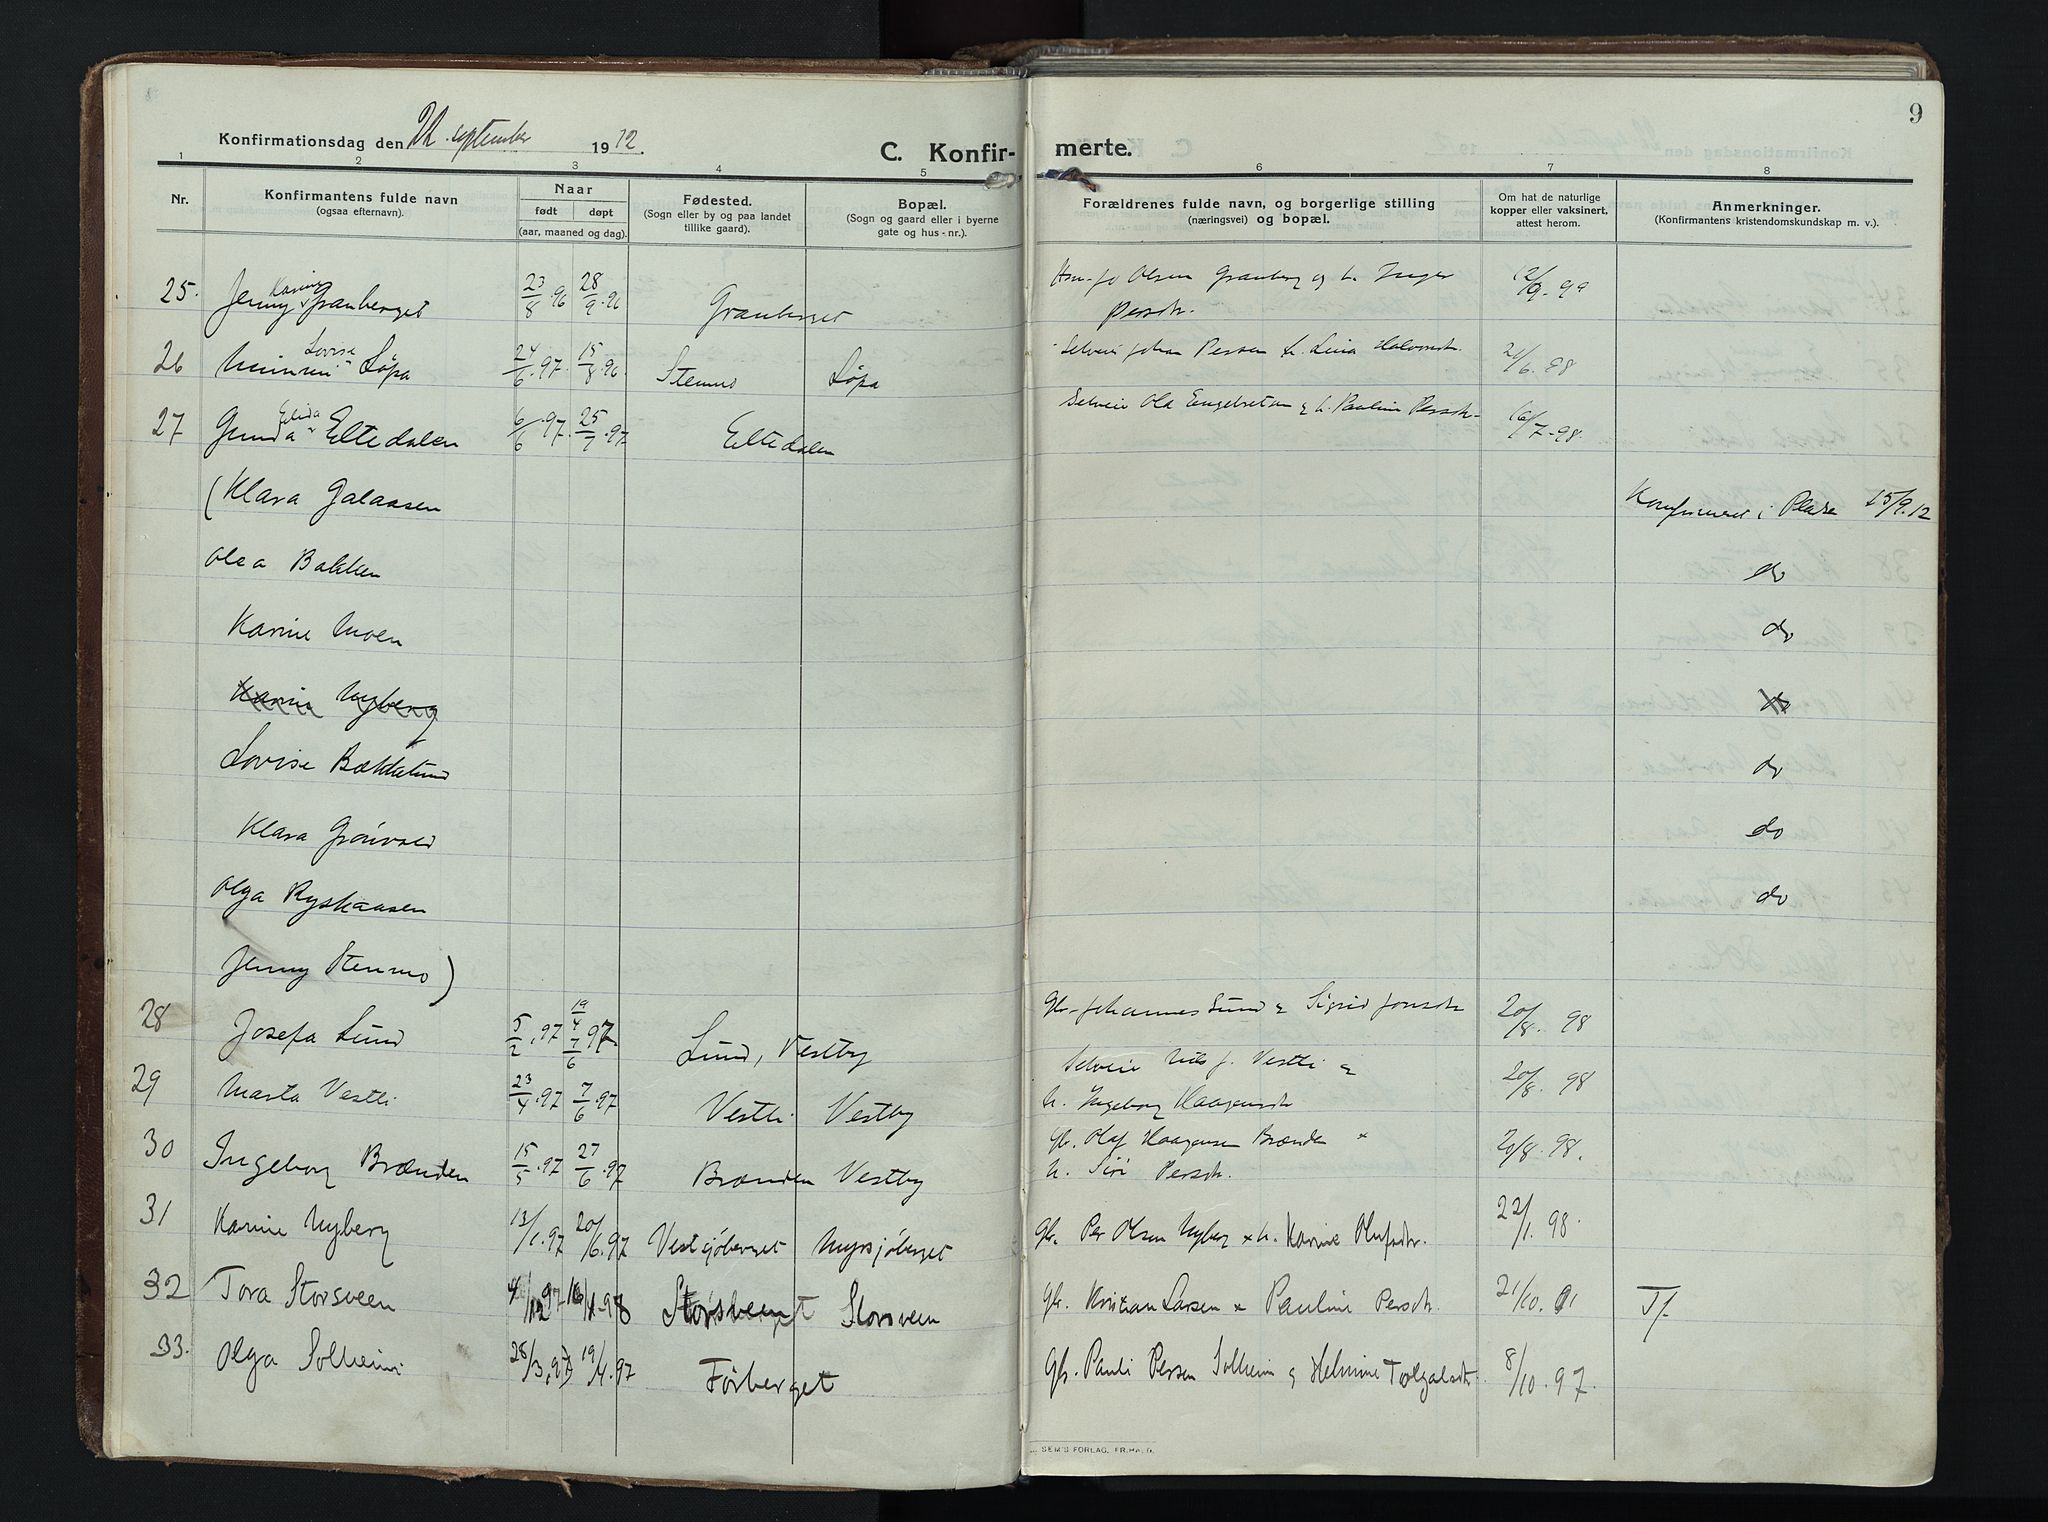 9
Konfirmationsdag den september 1912.
C. Konfir- merte.
1 2 3 4 5 6 7 8
Nr.
Konfirmantens fulde navn
(ogsaa efternavn).
Naar
født døpt
(aar, maaned og dag).
Fødested.
(Sogn eller by og paa landet
tillike gaard).
Bopæl.
(Sogn og gaard eller i byerne
gate og hus-nr.).
Forældrenes fulde navn, og borgerlige stilling
(næringsvei) og bopæl.
Om hat de naturlige
kopper eller vaksinert,
attest herom.
Anmerkninger.
(Konfirmantens kristendomskundskap m. v.).
25. Jenny Karine Granberget 23/8.96 28/9.96 Granberget Jo Olsen Granberg og h. Inger
Persdtr.
26 Lovise Løpa 24/6.97 15/8.96 Stenmo Løpa Selveier Johan Persen h. Lina Halvorsdtr. 21/6.98
27 Gunda Elida Eltedalen 6/6.97 25/7.97 Eltedalen Selveier Ola Engebretsen & h. Pauline Persdtr. 16/7-98
(Klara Galaasen Konfirmeret i Plassen 15/9.12
Olea Bakken do
Karine Moen do
Karine Nyberg do
Lovise Bækkelund do
Klara Grönvold do
Olga Ryskaasen do
Jenny Stenmo)
28 Josefa Lund 5/2.97 19/4 97 7/6 Lund, Vestby Gbr. Johannes Lund & Sigrid Jonsdtr 20/8.98
29 Marta Vestli 23/4.97 7/6.97 Vestli Vestby Selveier Nils J. Vestli &
h. Ingeborg Haagensdtr 20/8.98
30 Ingeborg Brænden 15/5.97 27/6.97 Brænden Vestby Gbr. Olaf Haagensen Brænden x
h. Siri Persdtr. 20/8.98.
31 Karine Nyberg 13/1.97 20/6.97 Vestsjöberget Myrsjöberget Gbr. Per Olsen Nyberg x h. Karine Olufsdtr. 22/1.98.
32 Tora Storsveen 4/12 97 16/1-98 Storsveen Gbr. Kristian Larsen x Pauline Persdtr. 21/10.01 T/.
33. Olga Solheim 28/3.97 19/4.97 Førberget Gbr. Pauli Persen Solheim & Helmine Tolgalsdtr. 8/10.97.
SEM'S FORLAG, FR.HALD.